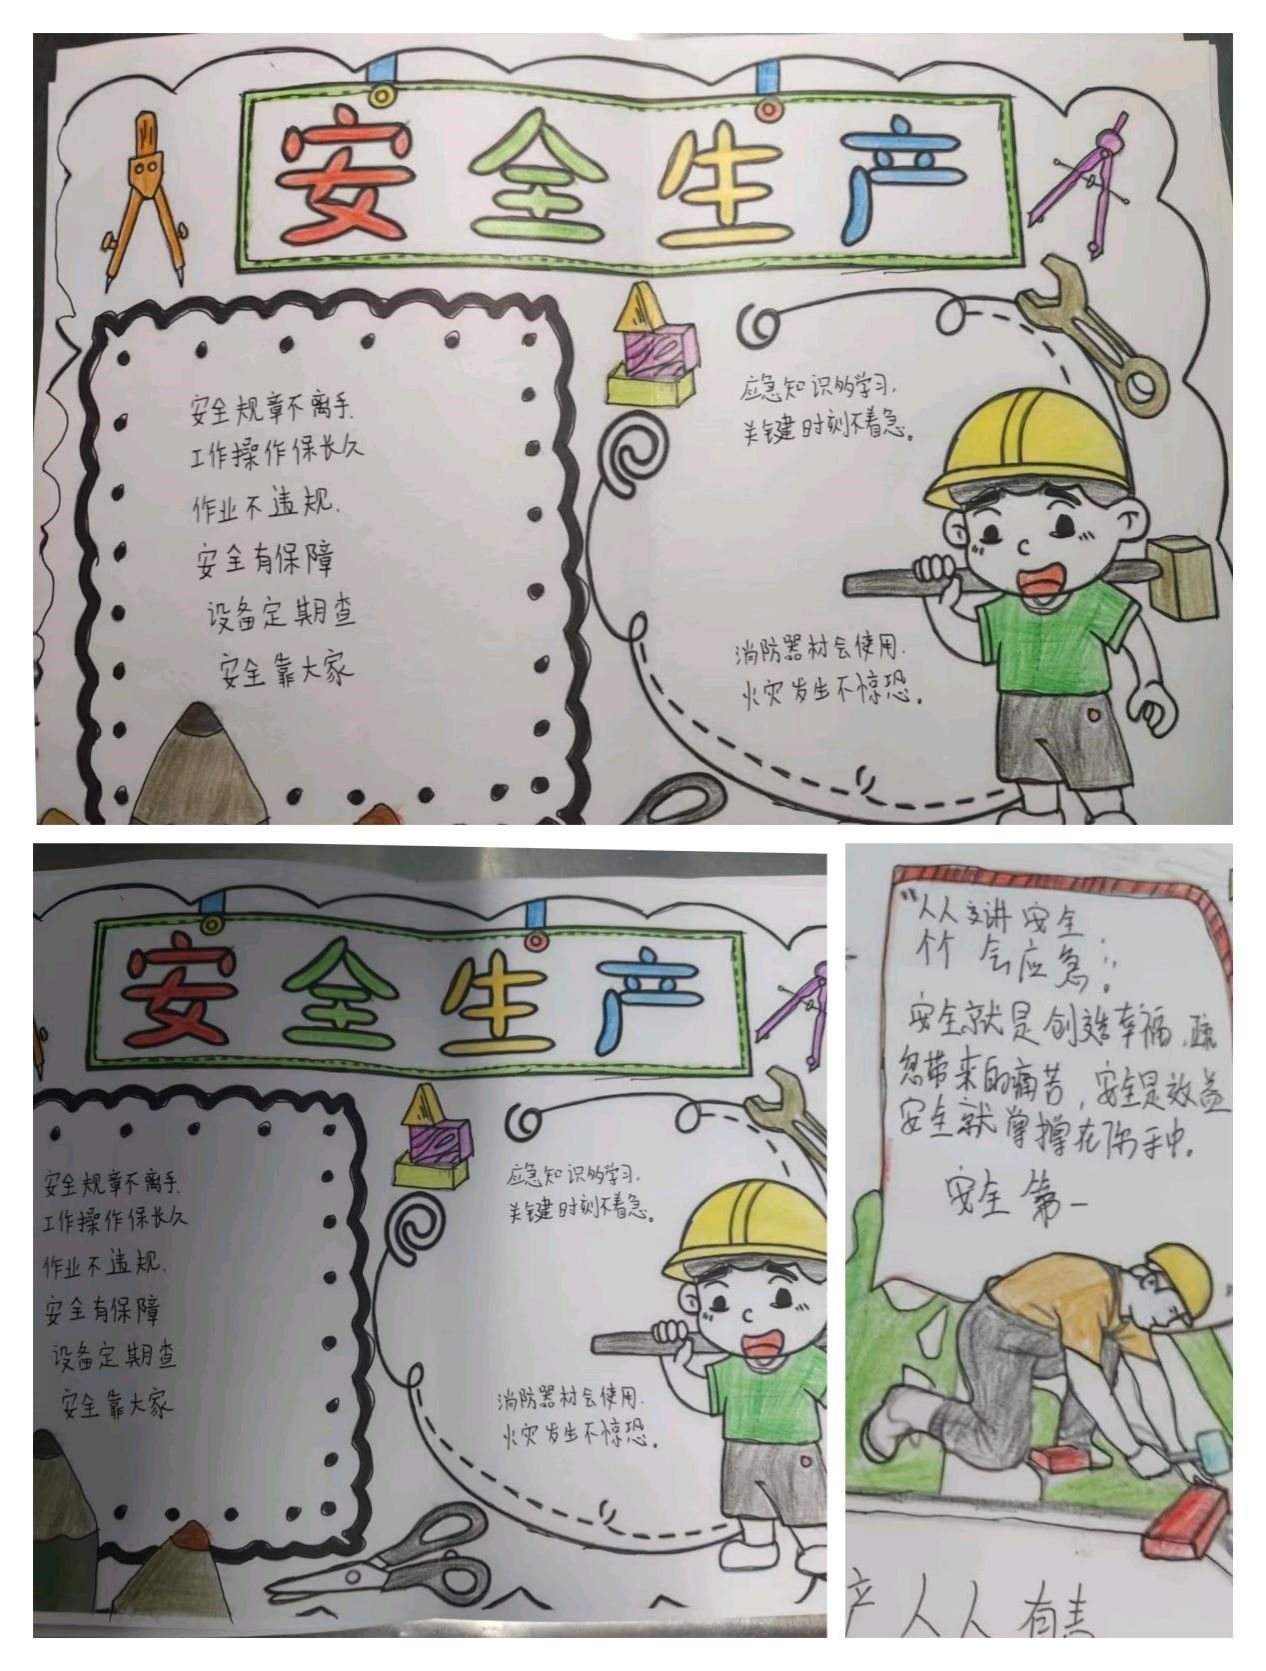 安全生产
安全规章不离手.
工作操作保长久
作业不违规.
安全有保障
设备定期查
安全靠大家
应急知识多学习,
关键时刻不着急。
消防器材会使用.
火灾发生不惊恐。
安全生产
安全规章不离手.
工作操作保长久
作业不违规.
安全有保障
设备定期查
安全靠大家
应急知识多学习,
关键时刻不着急。
消防器材会使用.
火灾发生不惊恐。
"人人讲安全
个个会应急"。
安全就是创造幸福,疏
忽带来的痛苦,安全是效益
安全就掌握在你手中。
安全第一
产人人有责